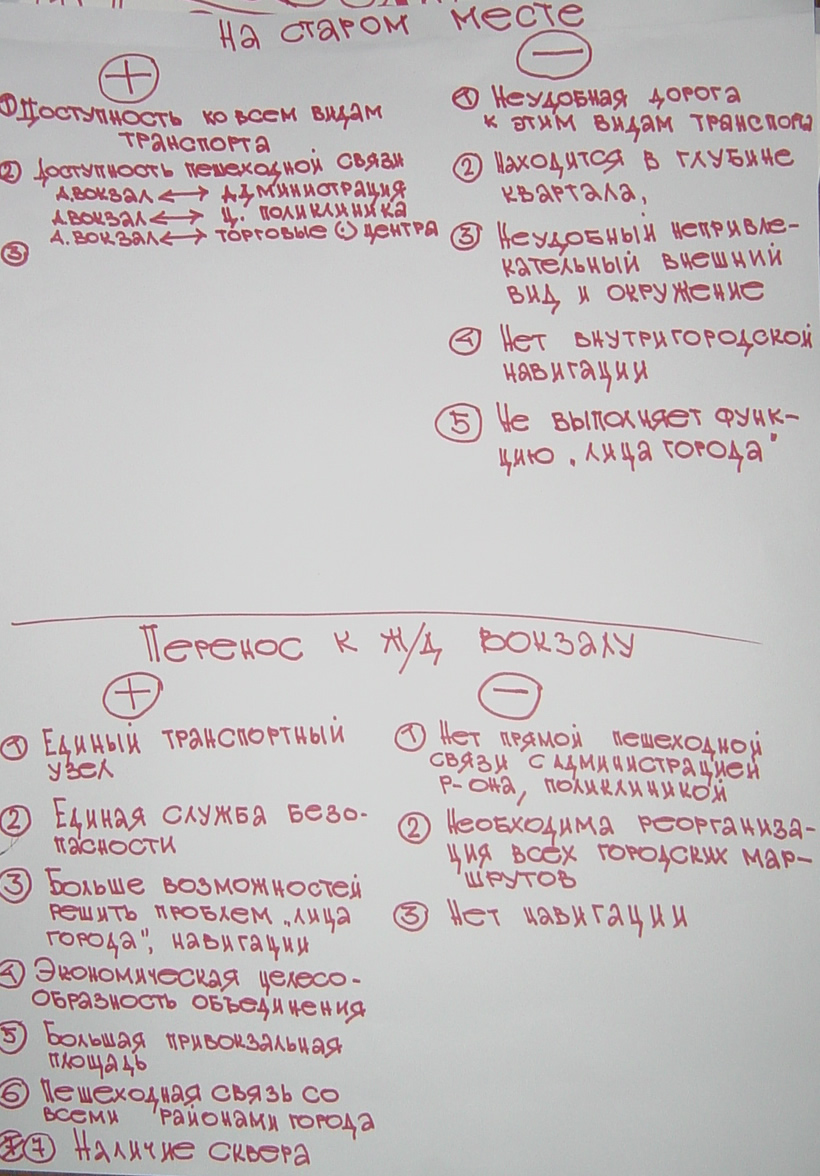 На старом месте
+
① Доступность ко всем видам
транспорта
② Доступность пешеходной связи
А.вокзал ⟷ Администрация
А.вокзал ⟷ Ц. поликлиника
А.вокзал ⟷ торговые (·) центра
③
−
① Неудобная дорога
к этим видам транспорта
② Находится в глубине
квартала,
③ Неудобный непривле-
кательный внешний
вид и окружение
④ Нет внутригородской
навигации
⑤ Не выполняет функ-
цию „лица города"
Перенос к ж/д вокзалу
+
① Единый транспортный
узел
② Единая служба безо-
пасности
③ Больше возможностей
решить проблем „лица
города", навигации
④ Экономическая целесо-
образность объединения
⑤ Большая привокзальная
площадь
⑥ Пешеходная связь со
всеми районами города
⑦ Наличие сквера
−
① Нет прямой пешеходной
связи с администрацией
р-она, поликлиникой
② Необходима реорганиза-
ция всех городских мар-
шрутов
③ Нет навигации